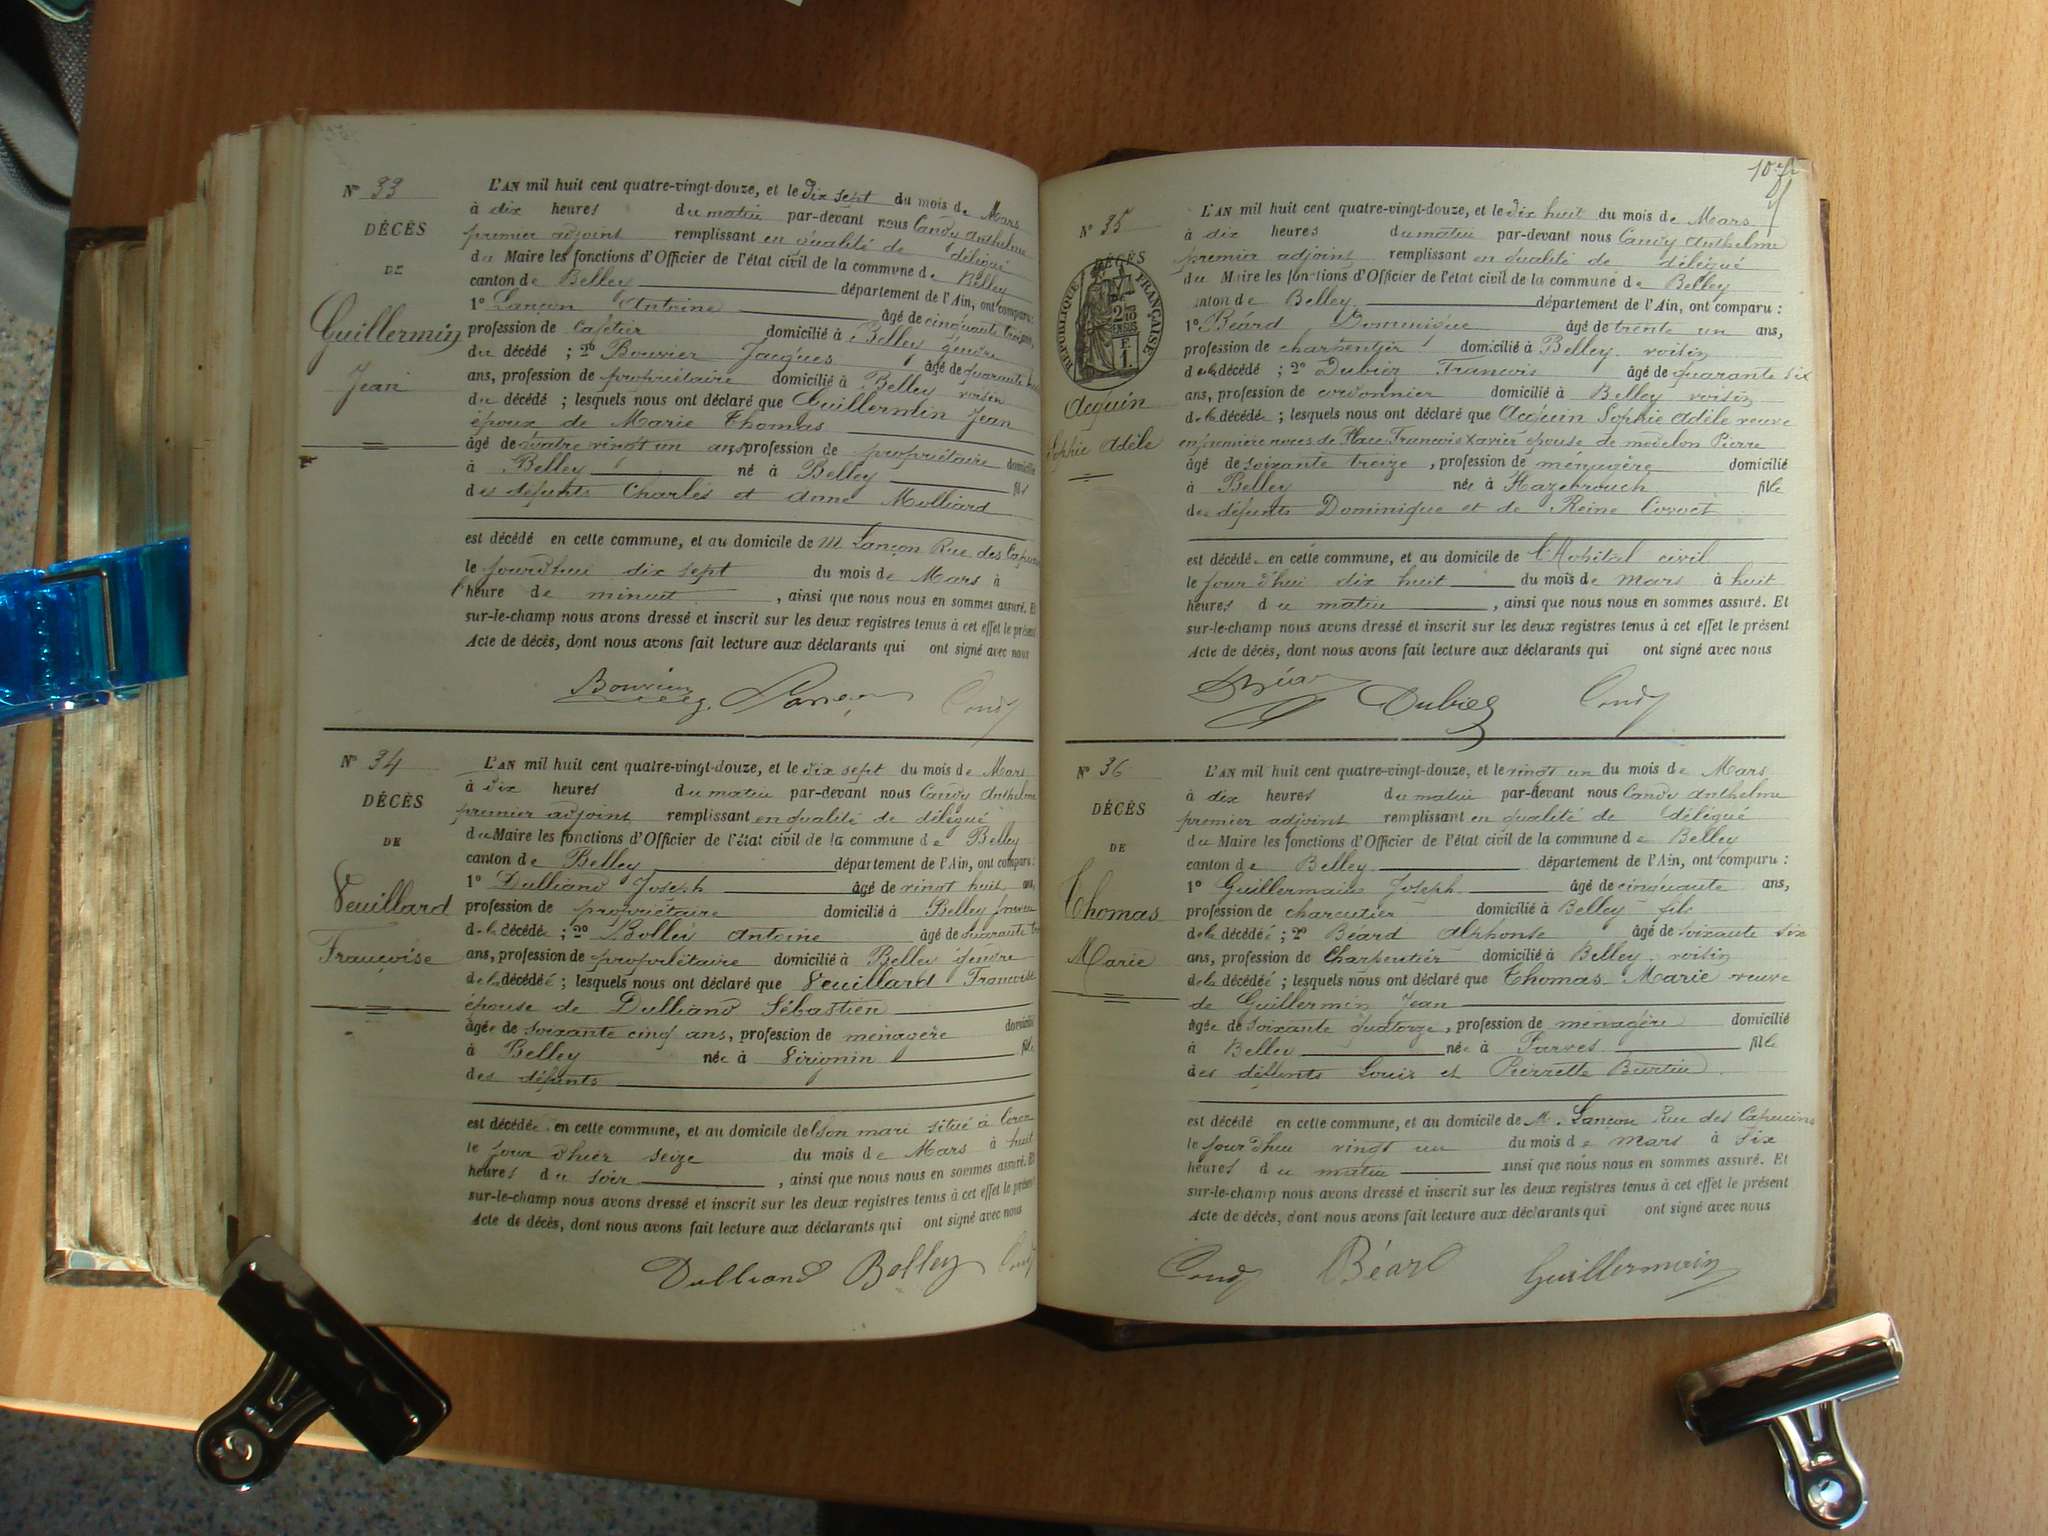 N° 33
DÉCÈS
DE
Guillermin
Jean
L'AN mil huit cent quatre-vingt-douze, et le dix sept du mois de Mars
à dix heures du matin par-devant nous Candy Anthelme
premier adjoint remplissant en qualité de délégué
du Maire les fonctions d'Officier de l'état civil de la commune de Belley
canton de Belley département de l'Ain, ont comparu :
1° Lançon Antoine âgé de cinquante trois ans,
profession de cafetier domicilié à Belley gendre
du décédé ; 2° Bouvier Jacques âgé de quarante
ans, profession de propriétaire domicilié à Belley voisin
du décédé ; lesquels nous ont déclaré que Guillermin Jean
époux de Marie Thomas
âgé de quatre vingt un ans profession de propriétaire domicilié
à Belley né à Belley fils
des défunts Charles et Anne Molliard
est décédé en cette commune, et au domicile de M. Lançon Rue des Capucins
le jourd'hui dix sept du mois de Mars à
l'heure de minuit, ainsi que nous nous en sommes assuré. Et
sur-le-champ nous avons dressé et inscrit sur les deux registres tenus à cet effet le présent
Acte de décès, dont nous avons fait lecture aux déclarants qui ont signé avec nous
Lançon Candy
N° 34
DÉCÈS
DE
Veuillard
Françoise
L'AN mil huit cent quatre-vingt-douze, et le dix sept du mois de Mars
à dix heures du matin par-devant nous Candy Anthelme
premier adjoint remplissant en qualité de délégué
du Maire les fonctions d'Officier de l'état civil de la commune de Belley
canton de Belley département de l'Ain, ont comparu :
1° Dulliand Joseph âgé de vingt huit ans,
profession de propriétaire domicilié à Belley
de la décédée ; 2° Bolley Antoine âgé de quarante
ans, profession de propriétaire domicilié à Belley gendre
de la décédée ; lesquels nous ont déclaré que Veuillard Françoise
épouse de Dulliand Sébastien
âgée de soixante cinq ans, profession de ménagère domicilié
à Belley née à Virignin fille
des défunts
est décédée en cette commune, et au domicile de son mari situé à
le jour d'hier seize du mois de Mars à huit
heures du soir, ainsi que nous nous en sommes assuré. Et
sur-le-champ nous avons dressé et inscrit sur les deux registres tenus à cet effet le présent
Acte de décès, dont nous avons fait lecture aux déclarants qui ont signé avec nous
Dulliand Bolley Candy
N° 35
DÉCÈS
RÉPUBLIQUE FRANÇAISE
Acquin
Sophie Adèle
L'AN mil huit cent quatre-vingt-douze, et le dix huit du mois de Mars
à dix heures du matin par-devant nous Candy Anthelme
premier adjoint remplissant en qualité de délégué
du Maire les fonctions d'Officier de l'état civil de la commune de Belley
canton de Belley département de l'Ain, ont comparu :
1° Béard Dominique âgé de trente un ans,
profession de charpentier domicilié à Belley voisin
de la décédé ; 2° Dubiez Francois âgé de quarante six
ans, profession de cordonnier domicilié à Belley voisin
de la décédée ; lesquels nous ont déclaré que Acquin Sophie Adèle veuve
en première noces de Place Francois Xavier épouse de modelon Pierre
âgé de soixante treize, profession de ménagère domicilié
à Belley née à Hazebrouck fille
des défunts Dominique et de Reine
est décédée en cette commune, et au domicile de l'Hopital civil
le jour d'hui dix huit du mois de mars à huit
heures du matin, ainsi que nous nous en sommes assuré. Et
sur-le-champ nous avons dressé et inscrit sur les deux registres tenus à cet effet le présent
Acte de décès, dont nous avons fait lecture aux déclarants qui ont signé avec nous
Dubiez Candy
N° 36
DÉCÈS
DE
Thomas
Marie
L'AN mil huit cent quatre-vingt-douze, et le vingt un du mois de Mars
à dix heures du matin par-devant nous Candy Anthelme
premier adjoint remplissant en qualité de délégué
du Maire les fonctions d'Officier de l'état civil de la commune de Belley
canton de Belley département de l'Ain, ont comparu :
1° Guillermain Joseph âgé de cinquante ans,
profession de charcutier domicilié à Belley fils
de la décédée ; 2° Béard Alphonse âgé de soixante six
ans, profession de Charpentier domicilié à Belley voisin
de la décédée ; lesquels nous ont déclaré que Thomas Marie veuve
de Guillermin Jean
âgée de soixante quatorze, profession de ménagère domicilié
à Belley née à Parves fille
des défunts Louis et Pierrette Burtin
est décédé en cette commune, et au domicile de M. Lançon rue des Capucins
le jourd'hui vingt un du mois de mars à six
heures du matin ainsi que nous nous en sommes assuré. Et
sur-le-champ nous avons dressé et inscrit sur les deux registres tenus à cet effet le présent
Acte de décès, dont nous avons fait lecture aux déclarants qui ont signé avec nous
Candy Béard Guillermain